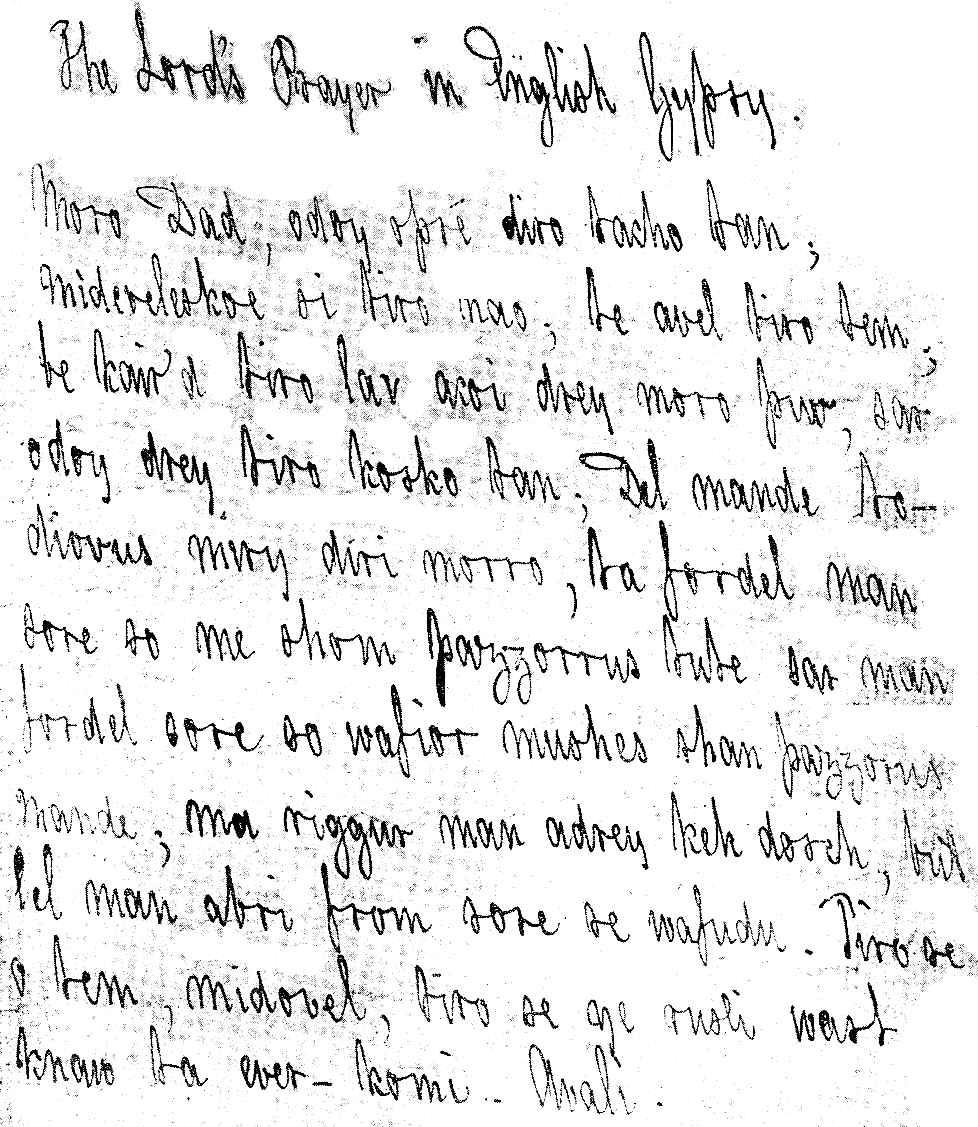 The Lord's Prayer in English Gypsy.
Moro Dad, odoy opré diro tacho tan;
Mideveleskoe si tiro nav; te avel tiro tem,
te kair'd tiro lav acoi drey moro puv, sar
odoy drey tiro kosko tan; Del mande to-
divvus miry diri morro, ta fordel man
sore so me shom pazzorrus tute sar man
fordel sore so wafior mushes shan pazzorus
mande; ma riggur man adrey keh dosch, but
lel man abri from sore se wafudu. Tiro se
o tem, midovel, tiro se ye rusli wast
knaw ta ever-komi. Avali.